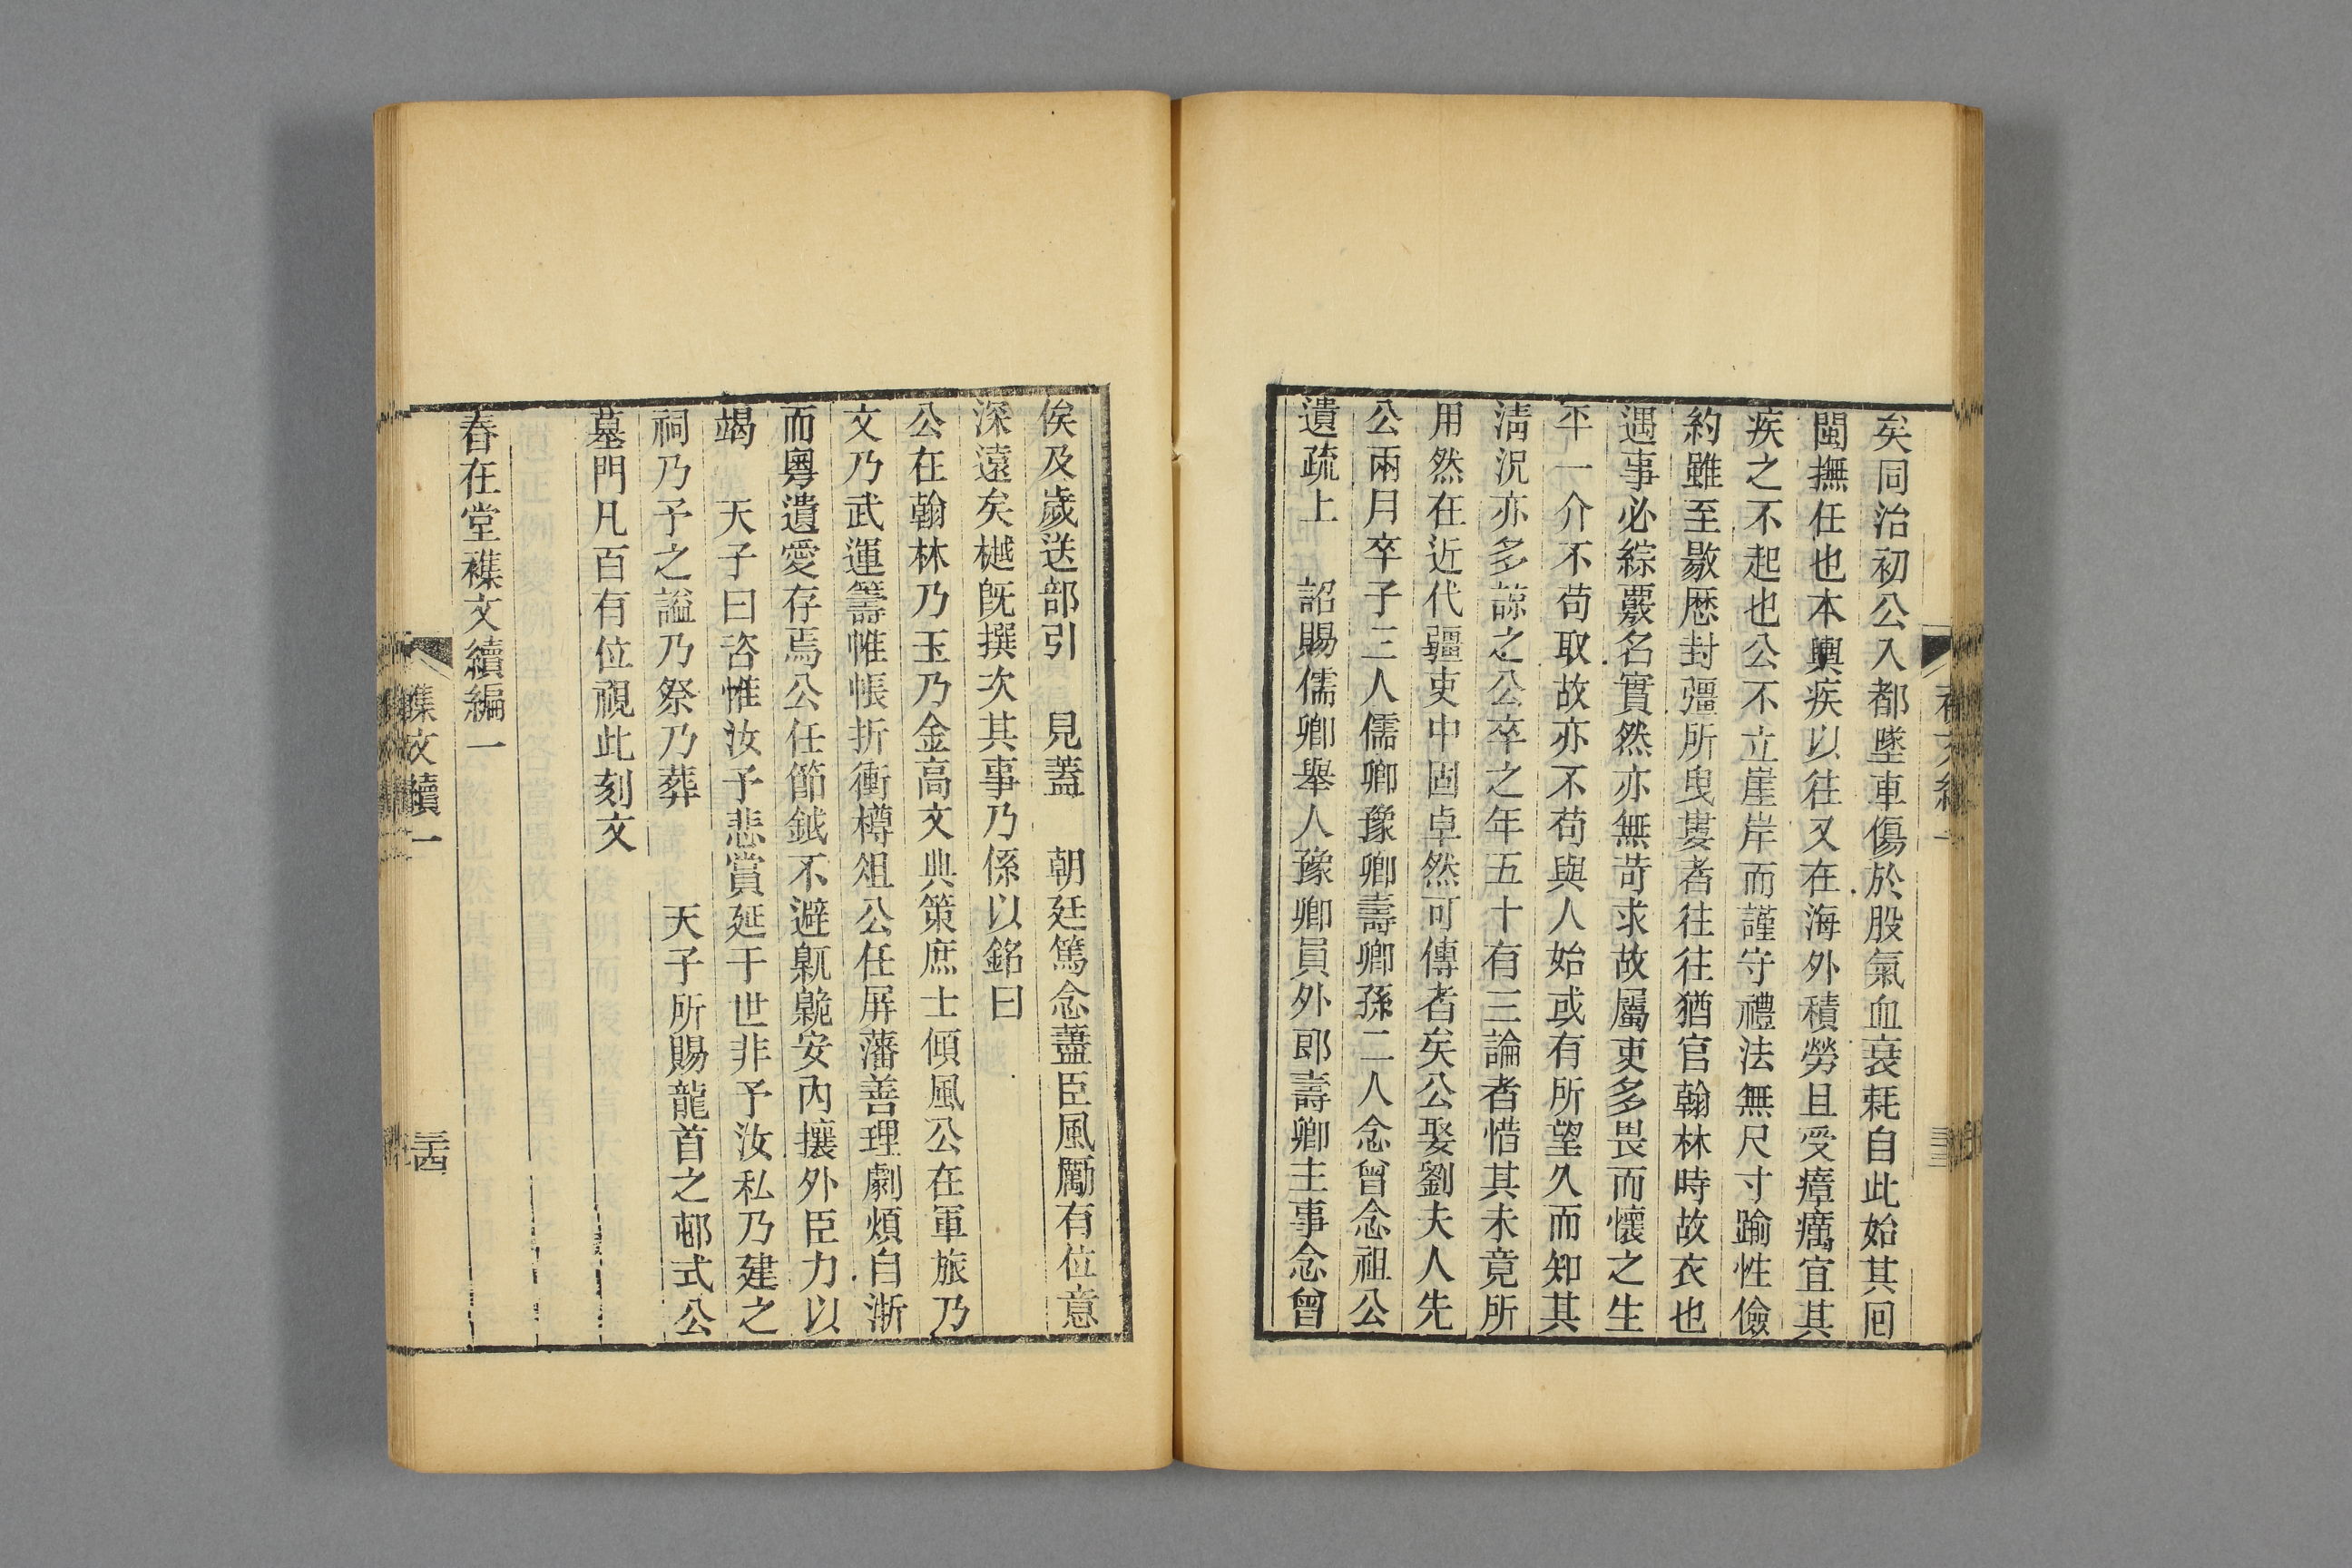 矣同治初公入都墜車傷於股氣血衰耗自此始其囘
閩撫任也本輿疾以往又在海外積勞且受瘴癘宜其
疾之不起也公不立崖岸而謹守禮法無尺寸踰性儉
約雖至敭歴封疆所曳婁者往往猶官翰林時故衣也
遇事必綜覈名實然亦無苛求故屬吏多畏而懷之生
平一介不苟取故亦不苟與人始或有所望久而知其
淸況亦多諒之公卒之年五十有三論者惜其未竟所
用然在近代疆吏中固卓然可傳者矣公娶劉夫人先
公兩月卒子三人儒卿豫卿壽卿孫二人念曾念祖公
遺疏上　詔賜儒卿舉人豫卿員外郎壽卿主事念曾
俟及歲送部引　見蓋　朝廷篤念藎臣風勵有位意
深遠矣樾旣撰次其事乃係以銘曰
公在翰林乃玉乃金高文典策庶士傾風公在軍旅乃
文乃武運籌帷帳折衝樽俎公任屏藩善理劇煩自浙
而粵遺愛存焉公任節鉞不避臲卼安內攘外臣力以
竭　天子曰咨惟汝予悲賞延于世非予汝私乃建之
祠乃予之謚乃祭乃葬　　天子所賜龍首之邨式公
墓門凡百有位視此刻文
春在堂襍文續編一
襍文續一
三十四